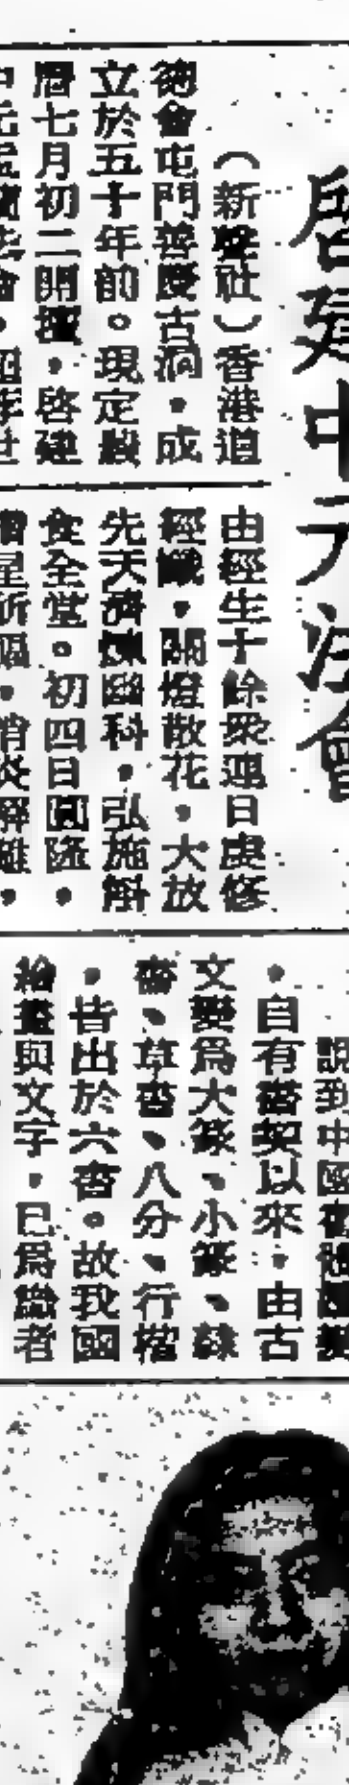 啓建中元法會
（新聲社）香港道
德會屯門善慶古洞，成
立於五十年前。現定農
曆七月初二開壇，啓建
由經生十餘衆連日虔修
經懺，關燈散花，大放
先天濟煉幽科，弘施斛
食全堂。初四日圓隆，
說到中國
，自有書契以來，由古
文變爲大篆、小篆、隸
書、草書、八分、行楷
，皆出於六書。故我國
繪畫與文字，已爲識者